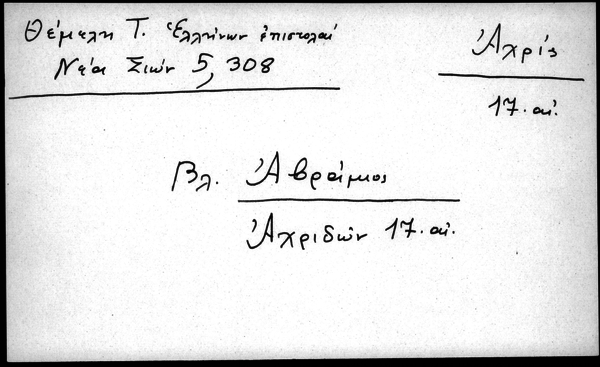 Θέμελη Τ. Ἑλλήνων ἐπιστολαί
Νέα Σιών 5, 308
Ἀχρίς
17. αἰ.
Βλ. Ἀβράμιος
Ἀχριδῶν 17. αἰ.